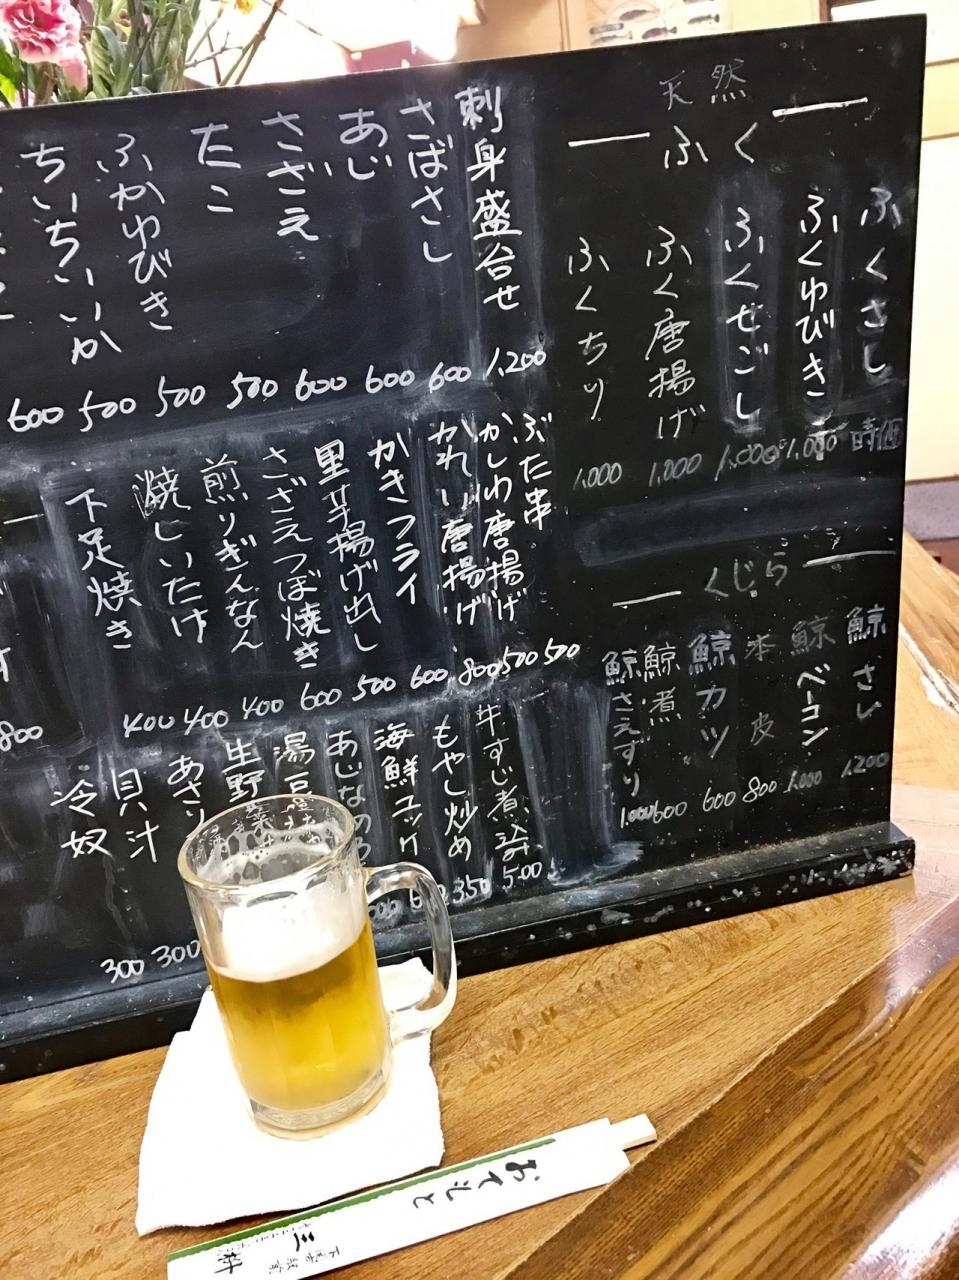 天然
ふく
ふくさし 時価
ふくゆびき 1,000
ふくせごし 1,000
ふく唐揚げ 1,000
ふくちり 1,000
くじら
鯨さし 1,200
鯨ベーコン 1,000
本皮 800
鯨カツ 600
鯨煮 600
鯨さえずり 1,000
刺身盛合せ 1,200
さばさし 600
あじ 600
さざえ 600
たこ 500
ふかゆびき 500
ちいちいいか 500
600
ぶた串 500
かしわ唐揚げ 500
かれい唐揚げ 800
かきフライ 600
里芋揚げ出し 500
さざえつぼ焼き 600
煎りぎんなん 400
焼しいたけ 400
下足焼き 400
800
牛すじ煮込み 500
もやし炒め 350
海鮮ユッケ
あじなめろ
湯豆
生野菜
あさり
貝汁 300
冷奴 300
おてもと
三枡